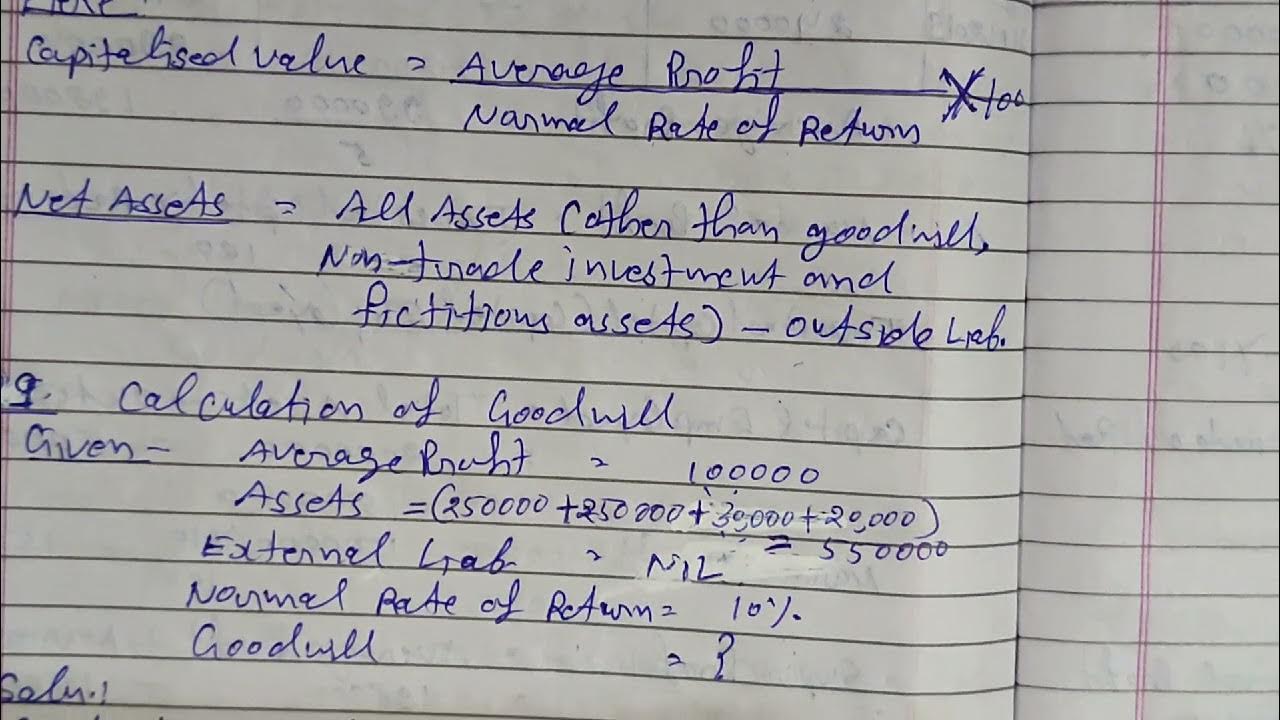 Capitalised value = Average Profit
X100
Normal Rate of Return
Net Assets = All Assets (other than goodwill,
Non-trade investment and
fictitious assets) - outside Liab.
Q. Calculation of Goodwill
Given - Average Profit = 100000
Assets = (250000 + 250000 + 30,000 + 20,000)
= 550000
External Liab. = NIL
Normal Rate of Return = 10%.
Goodwill = ?
Solu.: